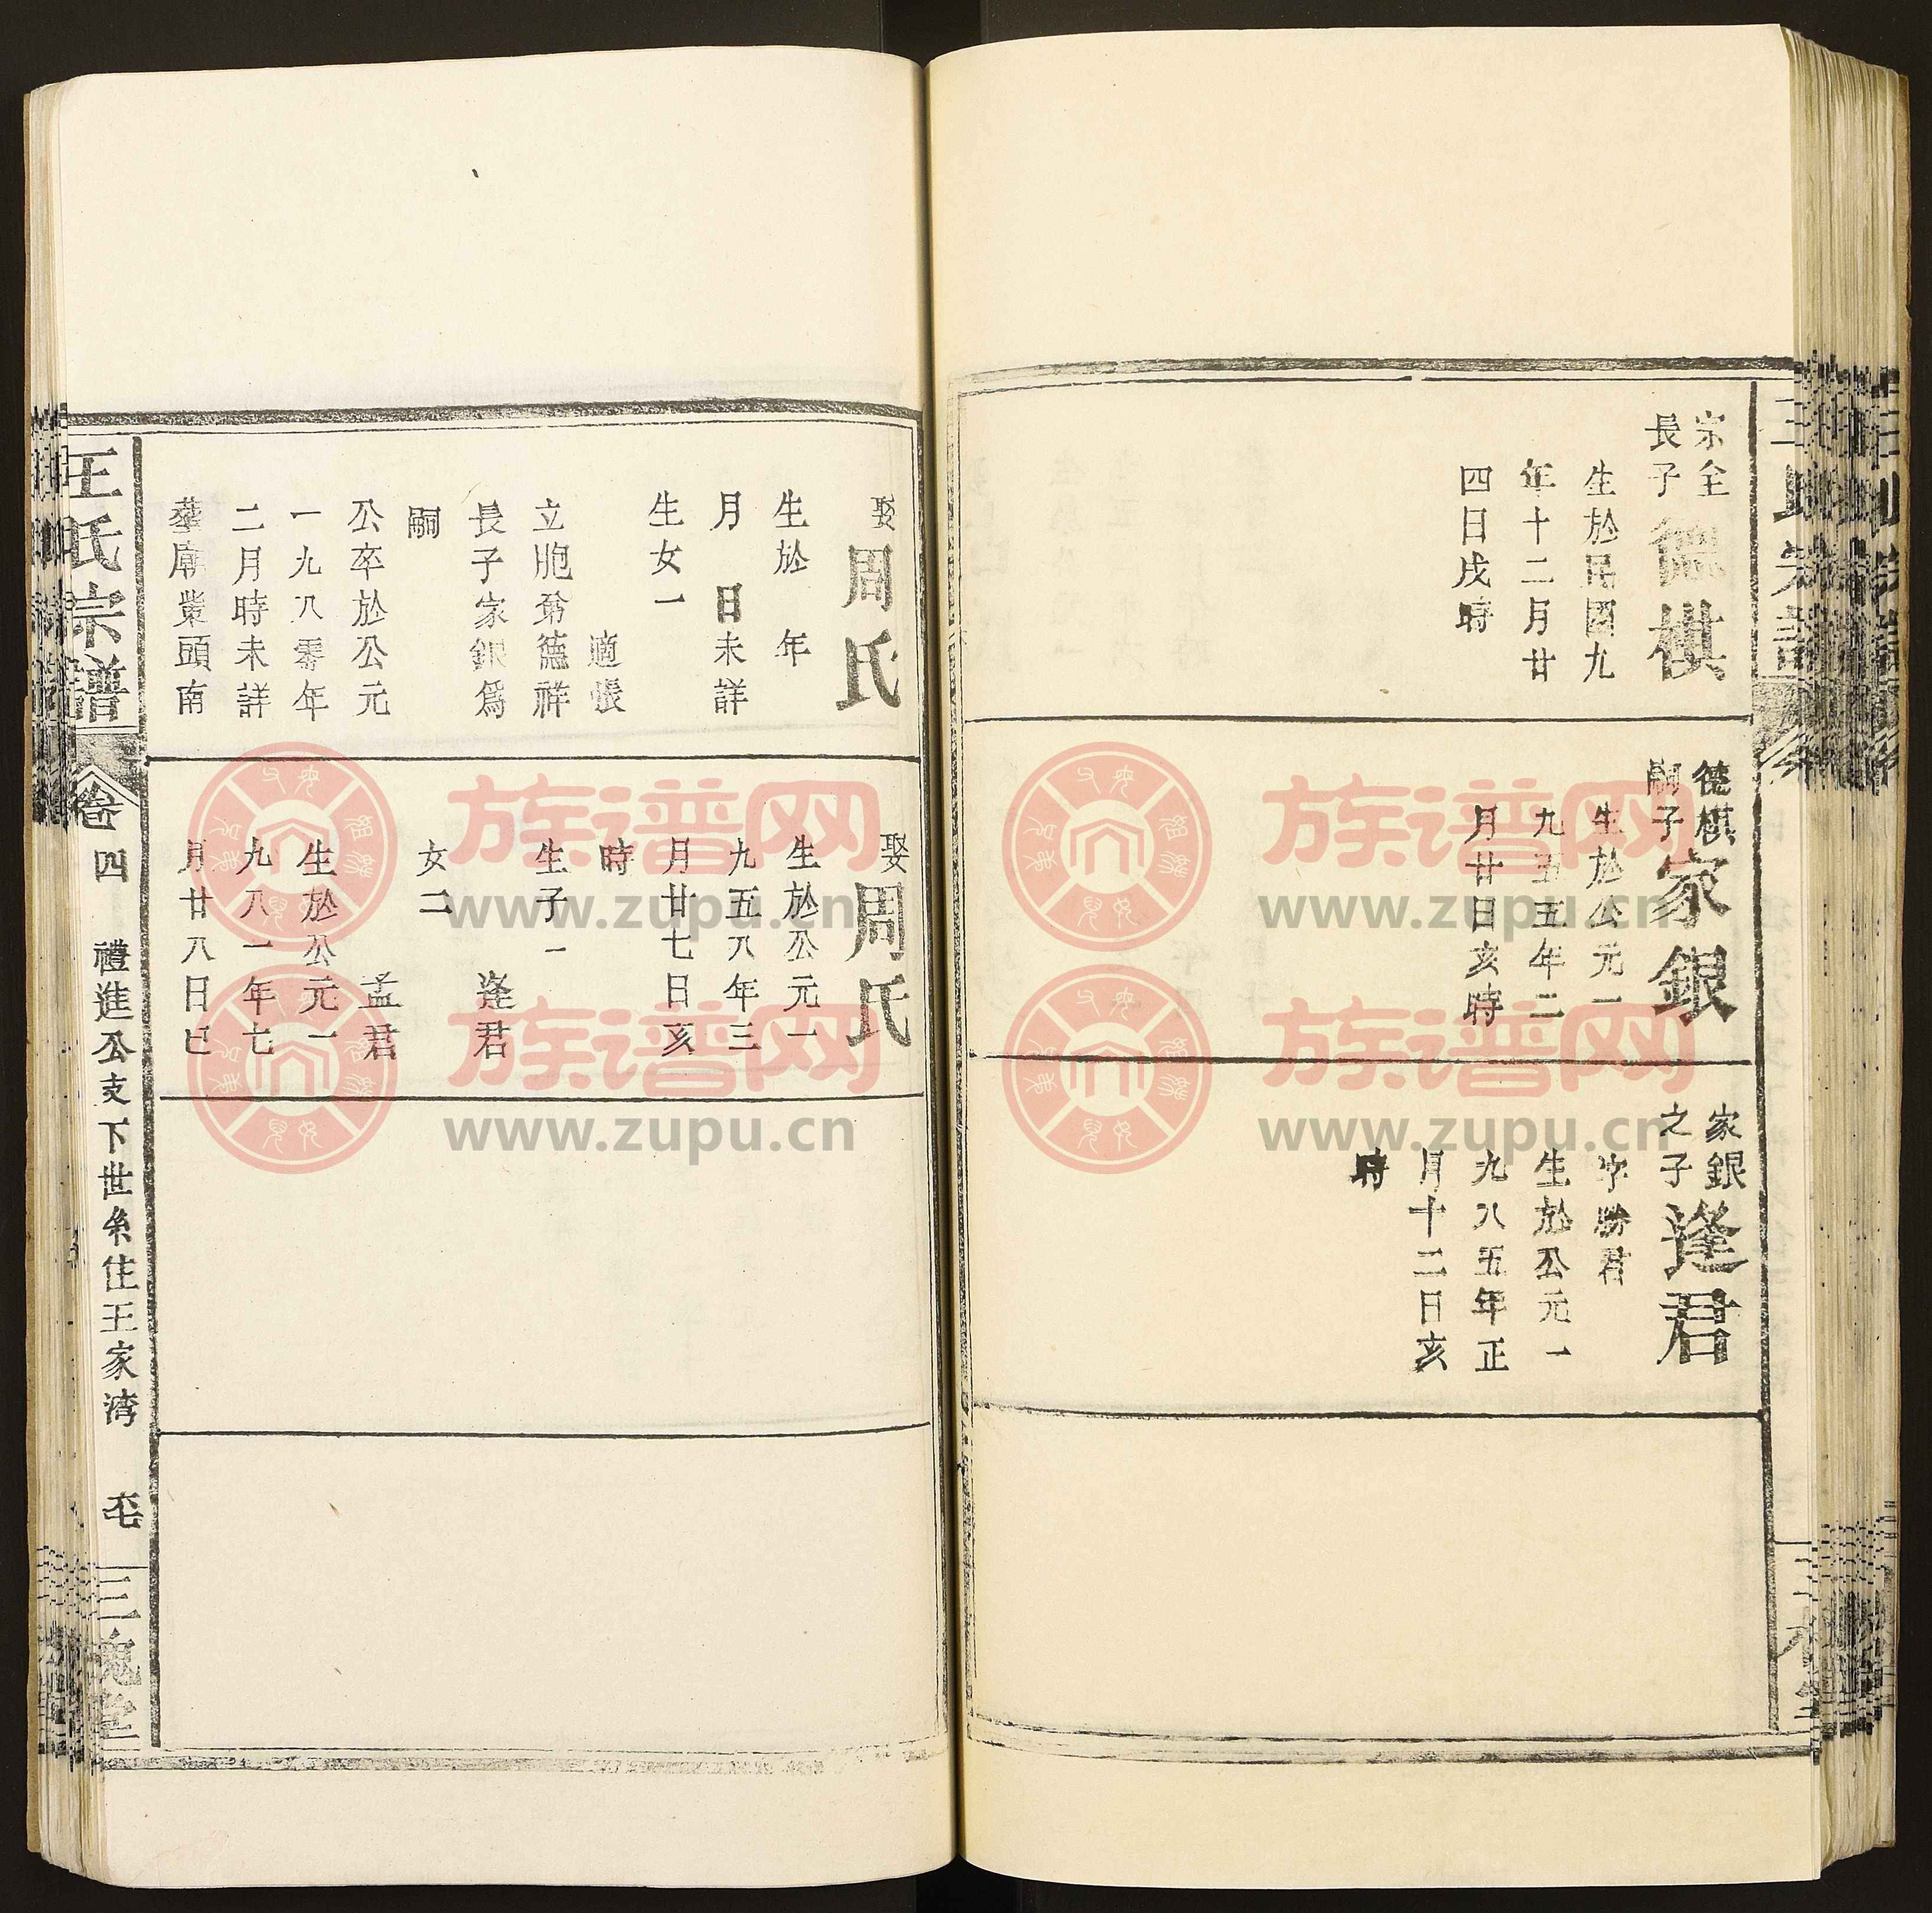 宗全
長子
德棋
生於民國九
年十二月廿
四日戌時
德棋
嗣子
家銀
生於公元一
九五五年二
月廿日亥時
家銀
之子
逢君
字勝君
生於公元一
九八五年正
月十二日亥
時
娶周氏
生於 年
月 日未詳
生女一
適張
立胞弟德祥
長子家銀為
嗣
公卒於公元
一九八零年
二月時未詳
葬廟嘴頭南
娶周氏
生於公元一
九五八年三
月廿七日亥
時
生子一
逢君
女二
孟君
生於公元一
九八一年七
月廿八日巳
王氏宗譜
卷四
禮進公支下世系住王家湾
三槐堂
族谱网
www.zupu.cn
族谱网
www.zupu.cn
族谱网
www.zupu.cn
族谱网
www.zupu.cn